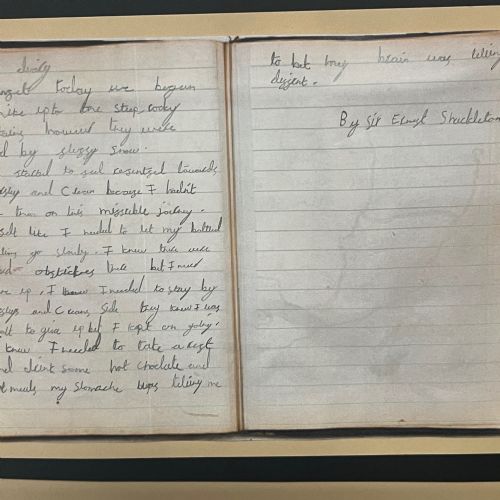 diary
today we begun
hike up the steep rocky
however they were
d by slussy snow.
started to feel resentful towards
and Crean because I hadn't
on this missible jorney.
felt like I needed to let my hatred
go slowly. I knew there were
obsticles but I must
up. I know I needed to stay by
and Creans side they knew I was
to give up but I kept on going.
knew I needed to take a rest
and drink some hot choclate and
meals my stomache was teliing me
to but my brain was teliing
diffrent.
By Sir Ernest Shackleton